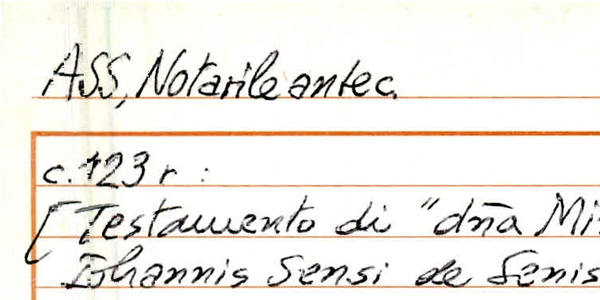 ASS, Notarile antec.
c. 123 r :
[Testamento di "dña Mi
Iohannis Sensi de Senis